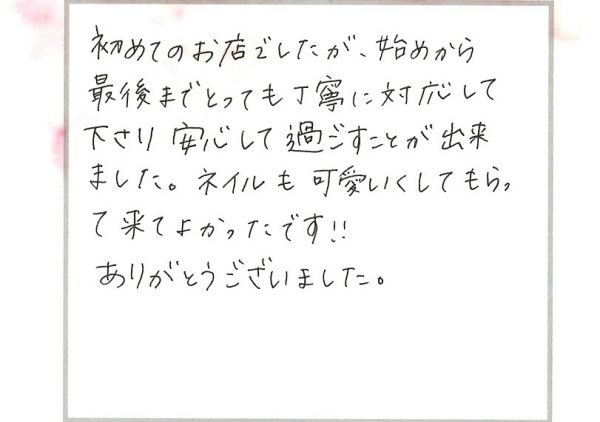 初めてのお店でしたが、始めから
最後までとっても丁寧に対応して
下さり安心して過ごすことが出来
ました。ネイルも可愛いくしてもらっ
て来てよかったです!!
ありがとうございました。